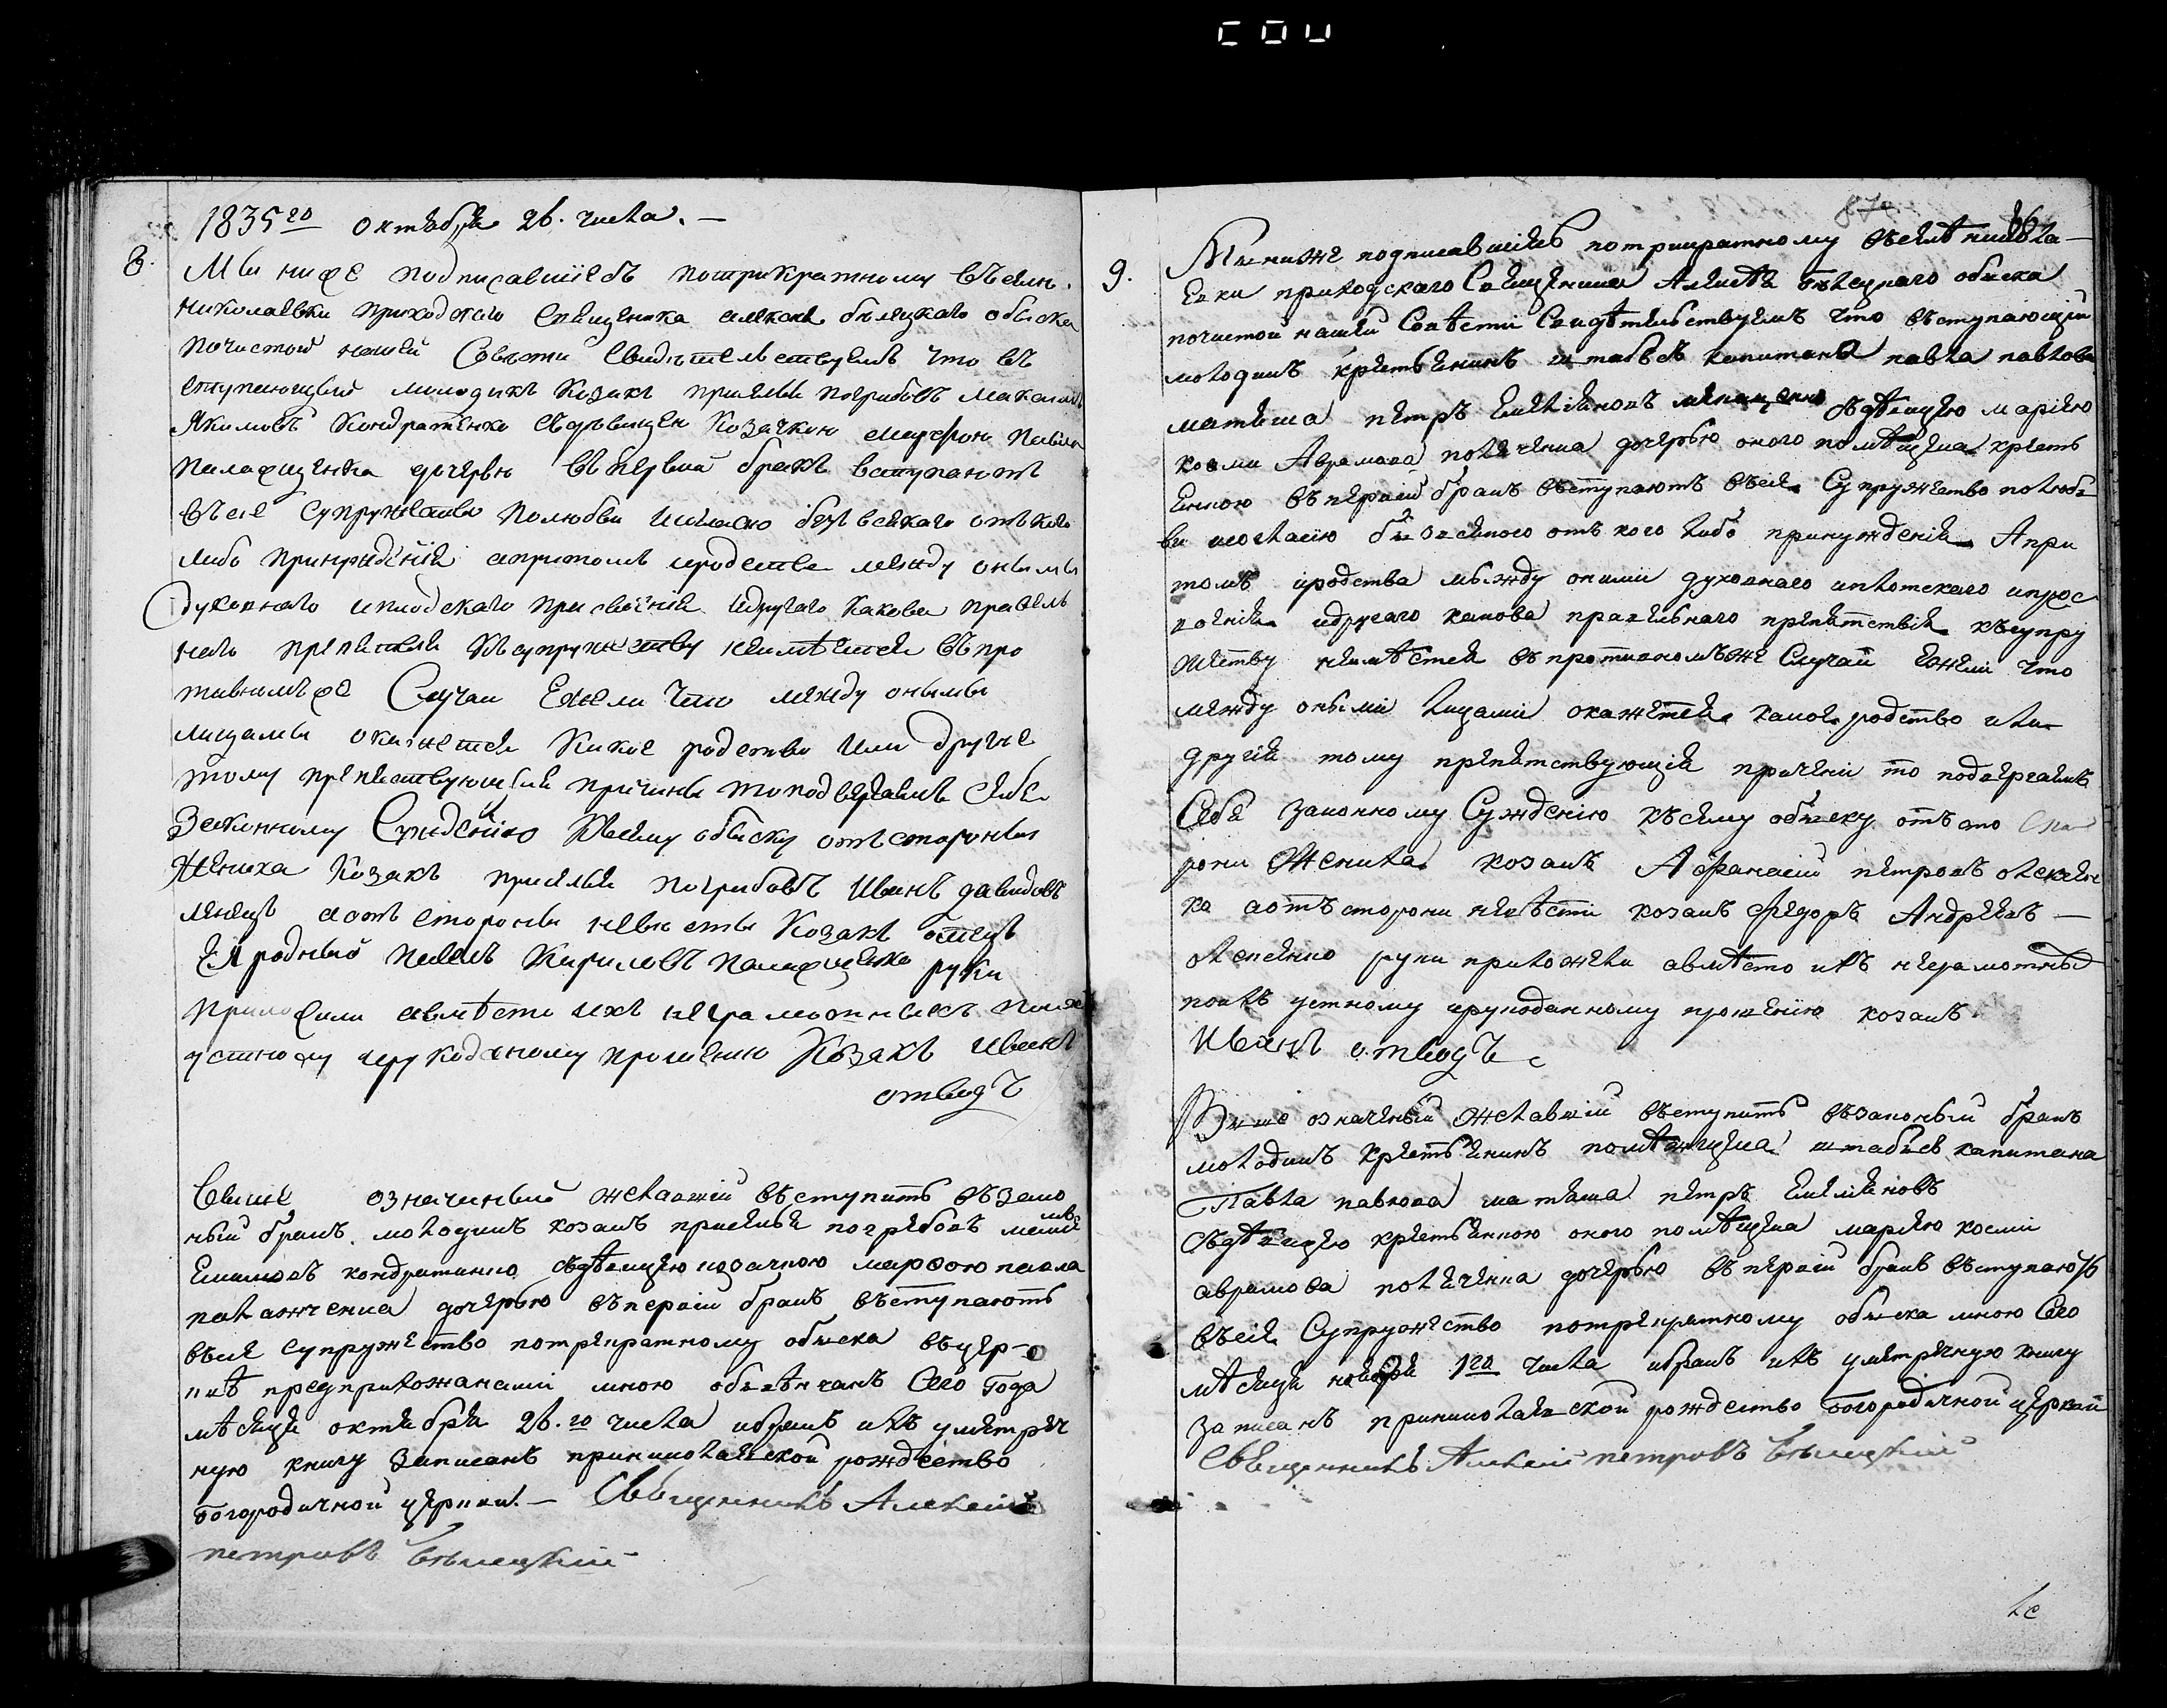 1835го октября 26. числа. —
8.
Мы ниже подписавшіесъ потрикратному въселе.
николаевки приходского священика алексея белецкаго обыска
почистой нашей Совести свидетельствуемъ что въ
ступающий молодикъ козакъ приселка погребовъ
Якимовъ Кондратенко съдевицею Козачкою марфою Павла
дочерью въпервый бракъ вступаютъ
въсие супружество полюбви исогласию безъ всякаго отъ кого
либо принуждения апритомъ иродства между онымы
духовнаго иплодскаго присвоения идругаго какова правиль
наго препяствия къ супружеству неиметься въпро
тивномъ же Случаи Ежели что между онымы
лицамы окажется какое родство или другие
тому препяствующии причины то подвергаемъ себя
Законному Сужденію Ксему обыску отъ стороны
жениха Козакъ приселка погребовъ Иванъ давидовъ
аотъ стороны невесты Козакъ отецъ
Ея родный Павелъ Кириловъ руки
приложили авмѣсто ихъ неграмотныхъ поихъ
устному ирукоданому прошению Козакъ Иванъ
отводъ
Више означиный желавшій въступить въ зако
ный бракъ молодикъ козакъ приселка погребовъ
Екимовъ кондратенко съдѣвицею козачкою марфою павла
дочерью въперъвій бракъ въступаютъ
въсия супружество потрикратному обыска въцер-
квѣ предприхожанами мною обвѣнчанъ Сего года
мѣсяця октября 26.го числа ибракъ ихъ уметрич
ную книгу записанъ приниколаевской рождество
богородичной церкви. — Священникъ Алексій
петровъ Бѣлецкій
874
86
9.
Мы ниже подписавшіясь потрикратному въселѣ никола—
евки приходскаго Священика Алексѣя бѣлецкаго обыска
почистой нашей Совѣсти Свидѣтельствуемъ что въступающій
молодикъ крестьянинъ штабсъ капитана павла павлова
матяша петръ Емельяновъ съдѣвицею марією
козми Аврамова дочерью оного помѣщика кресть
янкою въперъвій бракъ въступаютъ въсия Супружество полюб
ви исогласію безъ всякого отъ кого либо принужденія Апри
томъ иродства между оними духовнаго иплотскаго ипрос
военія идругаго какова правильнаго препятствія къ супру
жеству неимѣется въпротивномъ же Случаи Ежели что
между оными лицами окажется какое родство или
другія тому препятствующія причини то подвергаемъ
Себя законному Сужденію къ сему обыску отъ сто
рони Жениха козакъ Афанасій петровъ
ка аотъ сторони невѣсти козакъ Федоръ Андреевъ —
руки приложили авмѣсто ихъ неграмотныхъ
поихъ устному ирукоданному прошенію козакъ
Иванъ отводъ
Више означеный желавшій въступить въ законый бракъ
молодикъ крестьянинъ помѣщика штабсъ капитана
Павла павлова матяша петръ Емельяновъ
съдѣвицею крестьянкою оного помѣщика марією козми
аврамова дочерью въперъвій бракъ въступаютъ
въсия Супружество потрикратному обыска мною Сего
мѣсяця ноября 1го числа ибракъ ихъ уметричную книгу
записанъ приниколаевской рождество богородичной церкви
Священникъ Алексій петровъ Бѣлецкій